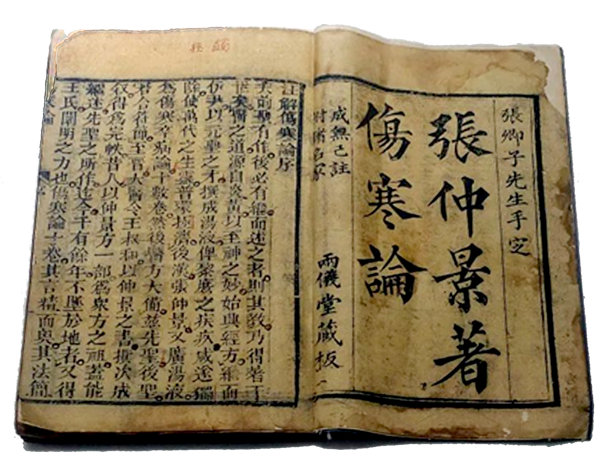 張卿子先生手定
張仲景著
傷寒論
成無己註
兩儀堂藏板
註解傷寒論序
夫前聖有作後必有繼而述之者則其教乃得著于
世矣醫之道源自炎黃以至神之妙始興經方繼而
伊尹以元聖之才撰成湯液俾黎庶之疾疚咸遂蠲
除使萬代之生靈普蒙拯濟後漢張仲景又廣湯液
為傷寒卒病論十數卷然後醫方大備茲先聖後聖
若合符節至晉太醫令王叔和以仲景之書撰次成
叙得為完帙昔人以仲景方一部為眾方之祖蓋能
繼述先聖之所作迄今千有餘年不墜於地者又得
王氏闡明之力也傷寒論十卷其言精而奧其法簡